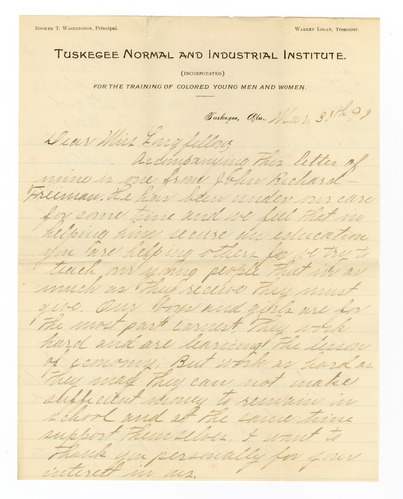 BOOKER T. WASHINGTON, Principal. WARREN LOGAN, Treasurer.
TUSKEGEE NORMAL AND INDUSTRIAL INSTITUTE.
(INCORPORATED)
FOR THE TRAINING OF COLORED YOUNG MEN AND WOMEN.
Tuskegee, Ala. Mar. 31th 99
Dear Miss Longfellow,
Accompanying this letter of
mine is one from John Richard
Freeman. He has been under our care
for some time and we feel that in
helping him secure an education
you are helping others for we try to
teach our young people that in as
much as they receive they must
give. Our boys and girls are for
the most part earnest. They work
hard and are learning the lesson
of economy. But work as hard as
they may they can not make
sufficient money to remain in
school and at the same time
support themselves. I want to
thank you personally for your
interest in us.